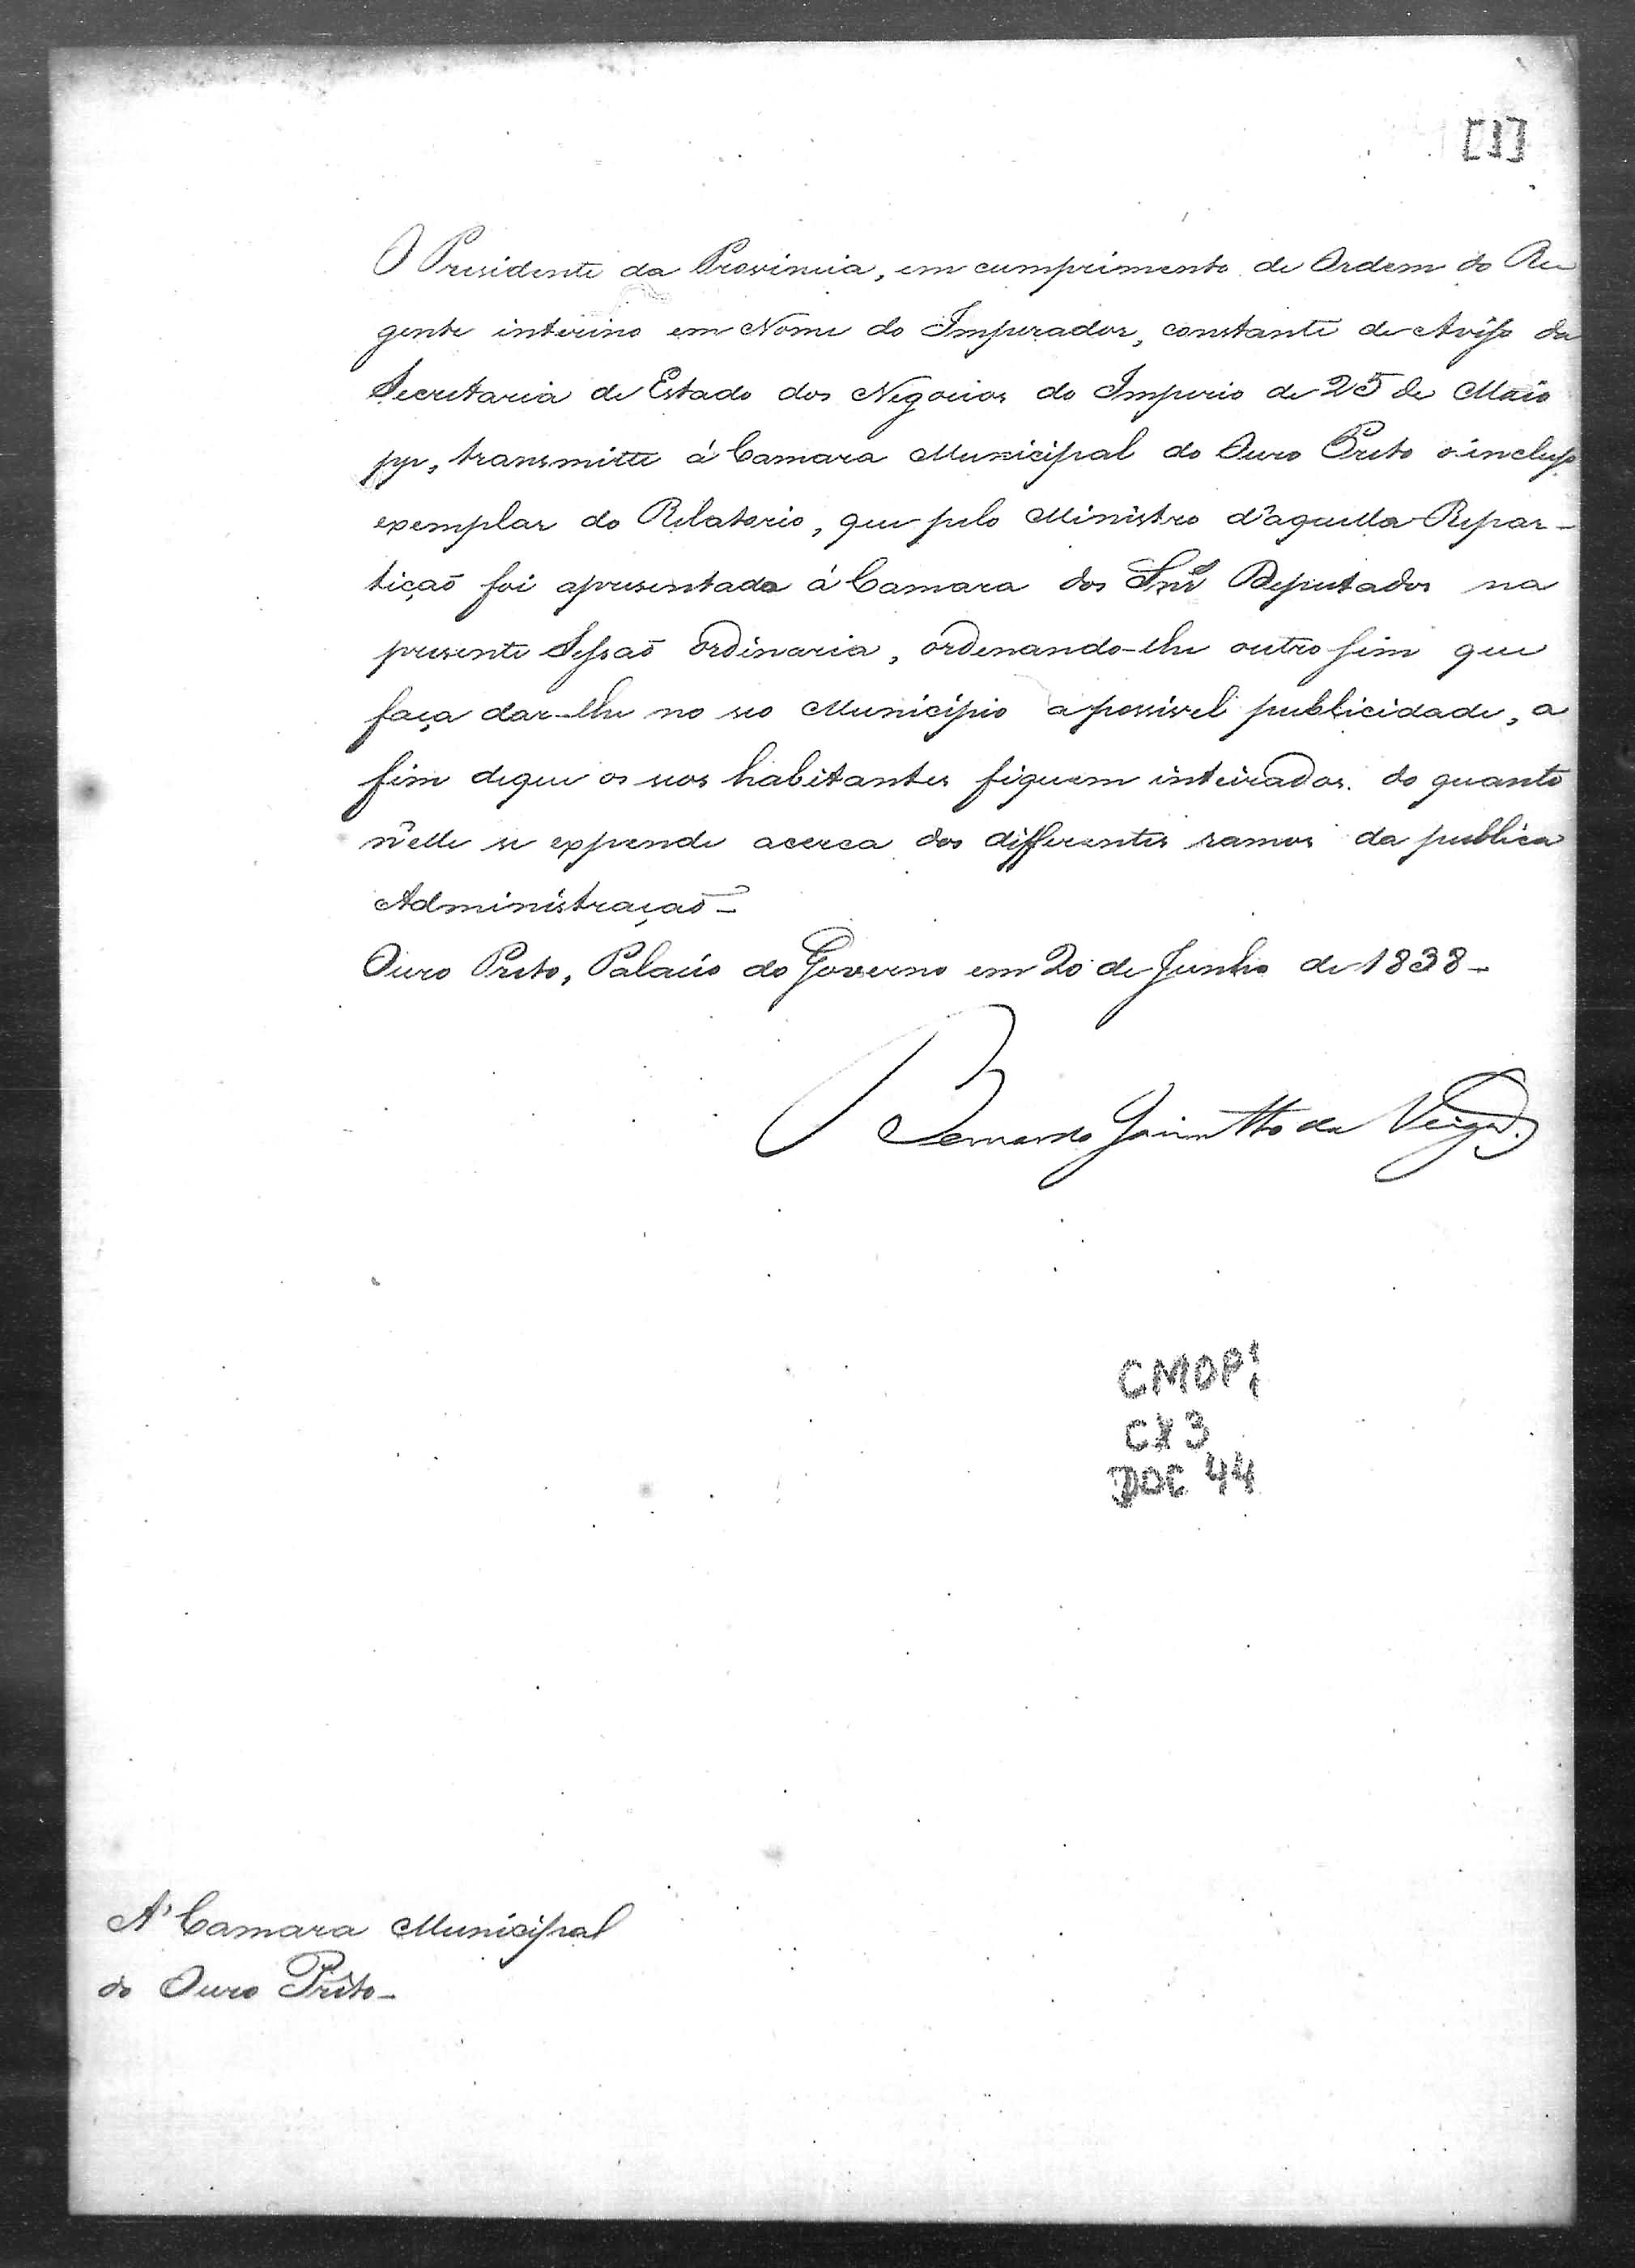 [1]
O Presidente da Provincia, em cumprimento de Ordem do Re
gente interino em Nome do Imperador, constante de Aviso da
Secretaria de Estado dos Negocios do Imperio de 25 de Maio
pp, transmitte á Camara Municipal do Ouro Preto o incluso
exemplar do Relatorio, que pelo Ministro d'aquella Repar-
tiçaõ foi apresentado á Camara dos Snrs Deputados na
presente Sessaõ ordinaria, ordenando-lhe outro sim que
faça dar-lhe no seo Municipio a possivel publicidade, a
fim de que os seos habitantes fiquem inteirados do quanto
n'elle se expende acerca dos differentes ramos da publica
Administraçaõ-
Ouro Preto, Palacio do Governo em 20 de Junho de 1838-
Bernardo Jacintho da Veiga
CMOP;
CX 3
DOC 44
A' Camara Municipal
do Ouro Preto-